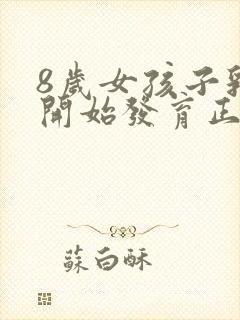 8歲女孩子
開始發育正
蘇白酥